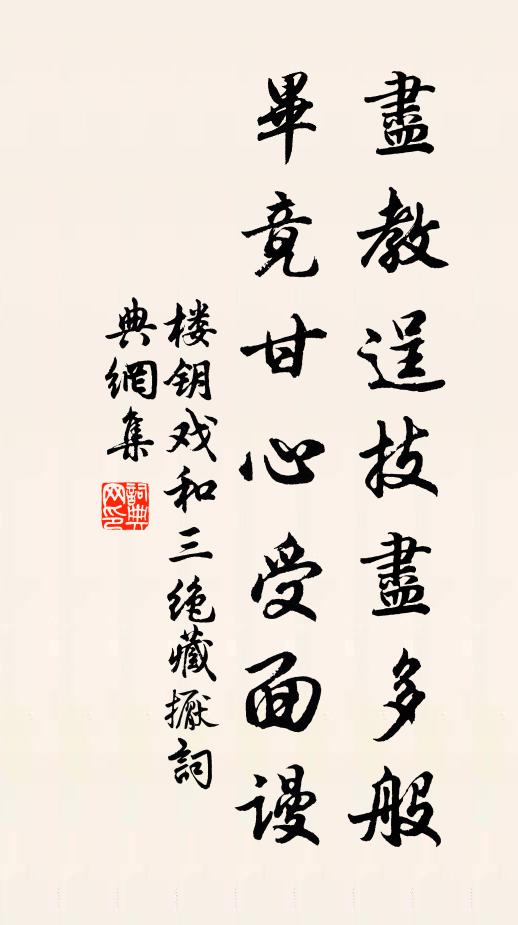 盡教逞技盡多般
畢竟甘心受面谩
楼钥戏和三绝藏擫詞
典網集
詞典网印